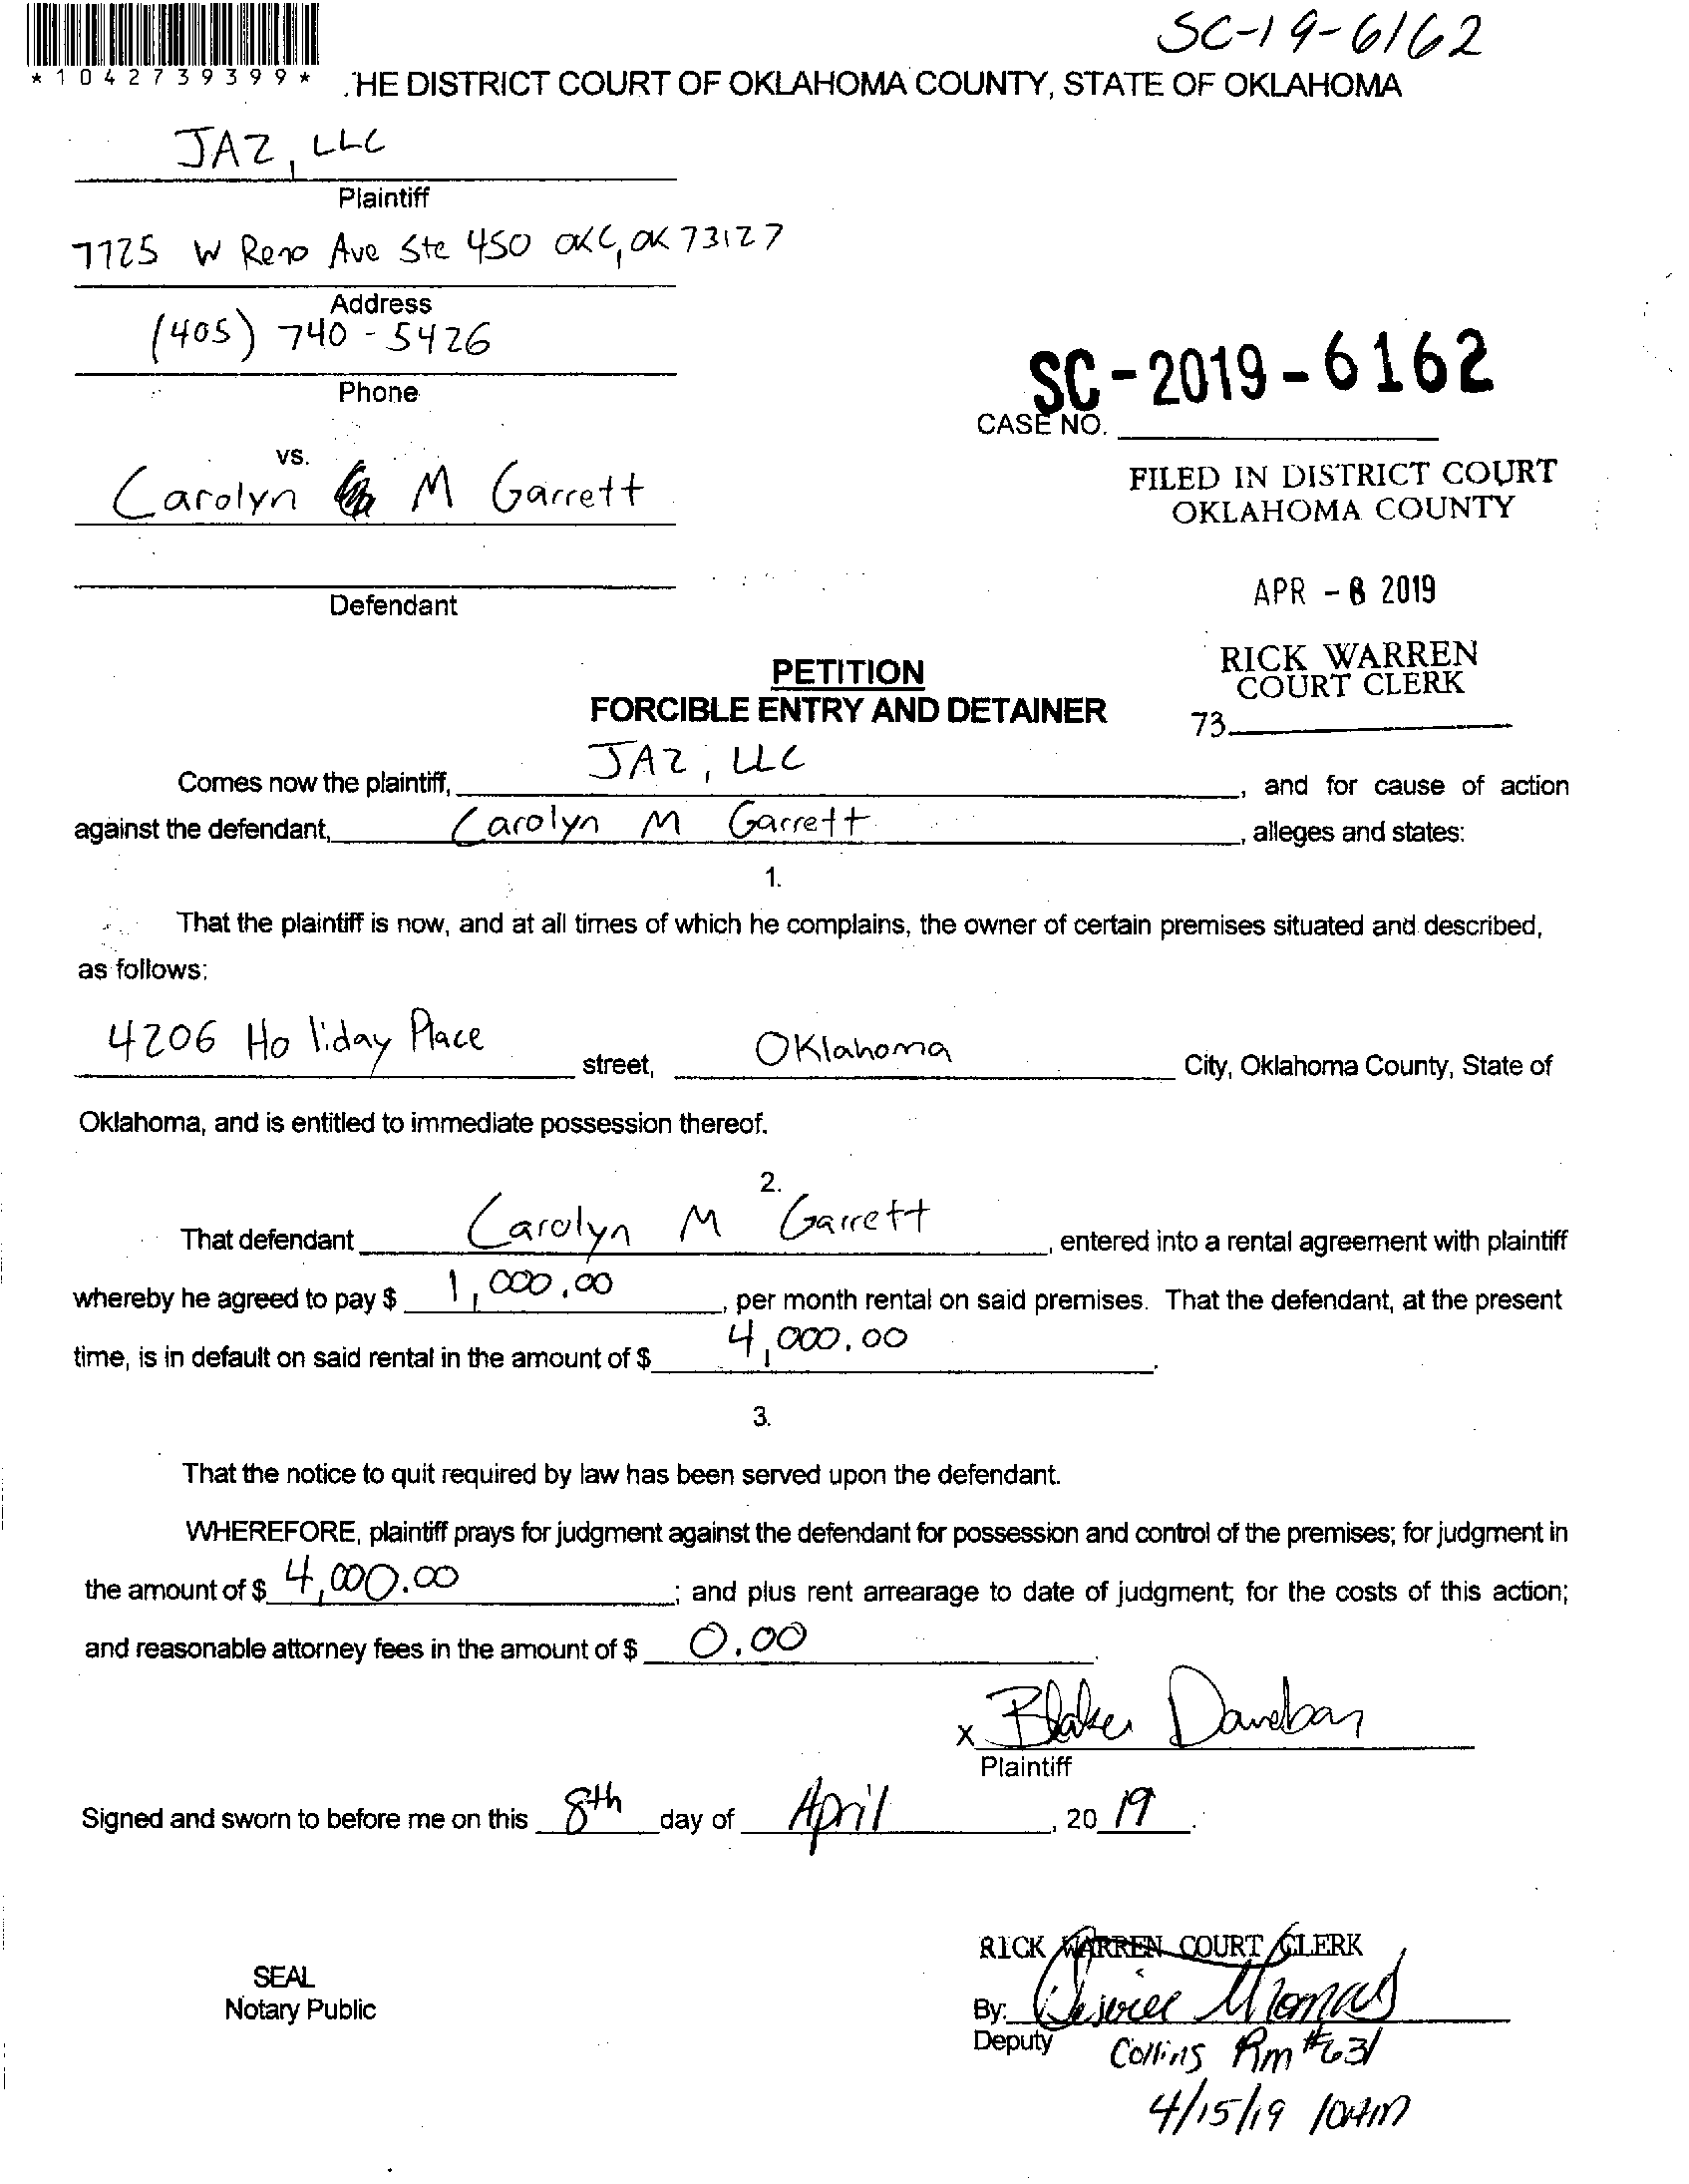 SC-19-6162
*1042739399*
.HE DISTRICT COURT OF OKLAHOMA COUNTY, STATE OF OKLAHOMA
JAZ, LLC
Plaintiff
7725 W Reno Ave Ste 450 OKC, OK 73127
Address
(405) 740-5426
Phone
SC-2019-6162
CASE NO.
vs.
Carolyn M Garrett
FILED IN DISTRICT COURT
OKLAHOMA COUNTY
Defendant
APR - 8 2019
RICK WARREN
COURT CLERK
73
PETITION
FORCIBLE ENTRY AND DETAINER
Comes now the plaintiff, JAZ, LLC, and for cause of action
against the defendant, Carolyn M Garrett, alleges and states:
1.
That the plaintiff is now, and at all times of which he complains, the owner of certain premises situated and described,
as follows:
4206 Holiday Place street, Oklahoma City, Oklahoma County, State of
Oklahoma, and is entitled to immediate possession thereof.
2.
That defendant Carolyn M Garrett, entered into a rental agreement with plaintiff
whereby he agreed to pay $ 1,000.00, per month rental on said premises. That the defendant, at the present
time, is in default on said rental in the amount of $ 4,000.00.
3.
That the notice to quit required by law has been served upon the defendant.
WHEREFORE, plaintiff prays for judgment against the defendant for possession and control of the premises; for judgment in
the amount of $ 4,000.00; and plus rent arrearage to date of judgment; for the costs of this action;
and reasonable attorney fees in the amount of $ 0.00.
x
Plaintiff
Signed and sworn to before me on this 8th day of April, 2019.
RICK WARREN COURT CLERK
SEAL
Notary Public
By: Thomas
Deputy
Collins Rm #631
4/15/19 10AM